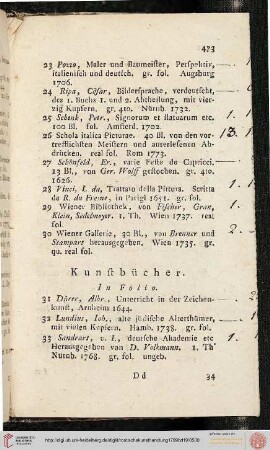 423
23 Pozzo, Maler und Baumeister, Perspektiv,
italienisch und deutsch. gr. fol. Augsburg
1706.
24 Ripa, Cäsar, Bildersprache, verdeutscht,
des 1. Buchs 1. und 2. Abtheilung, mit vier-
zig Kupfern. gr. 4to. Nürnb. 1732.
25 Schenk, Petr., Signorum et statuarum etc.
100 Bl. fol. Amsterd. 1702.
26 Schola italica Picturae. 40 Bl. von den vor-
treflichsten Meistern und auserlesenen Ab-
drücken. real fol. Rom 1773.
27 Schönfeld, Er., varie Feste de Capricci,
13 Bl., von Ger. Wolff gestochen. gr. 4to.
1626.
28 Vinci, L. da, Trattato della Pittura. Scritta
da R. du Fresne, in Parigi 1651. gr. fol.
29 Wiener Bibliothek, von Fischer, Gran,
Klein, Sedelmeyer. 1. Th. Wien 1737. real
fol.
30 Wiener Gallerie, 30 Bl., von Brenner und
Stampart herausgegeben, Wien 1735. gr.
qu. real fol.
Kunstbücher.
In Folio.
31 Dürer, Albr., Unterricht in der Zeichen-
kunst, Arnheim 1644.
32 Lundius, Joh., alte jüdische Alterthümer,
mit vielen Kupfern. Hamb. 1738. gr. fol.
33 Sandrart, v. I., deutsche Akademie etc
Herausgegeben von D. Volkmann. 1. Th
Nürnb. 1768. gr. fol. ungeb.
Dd 34